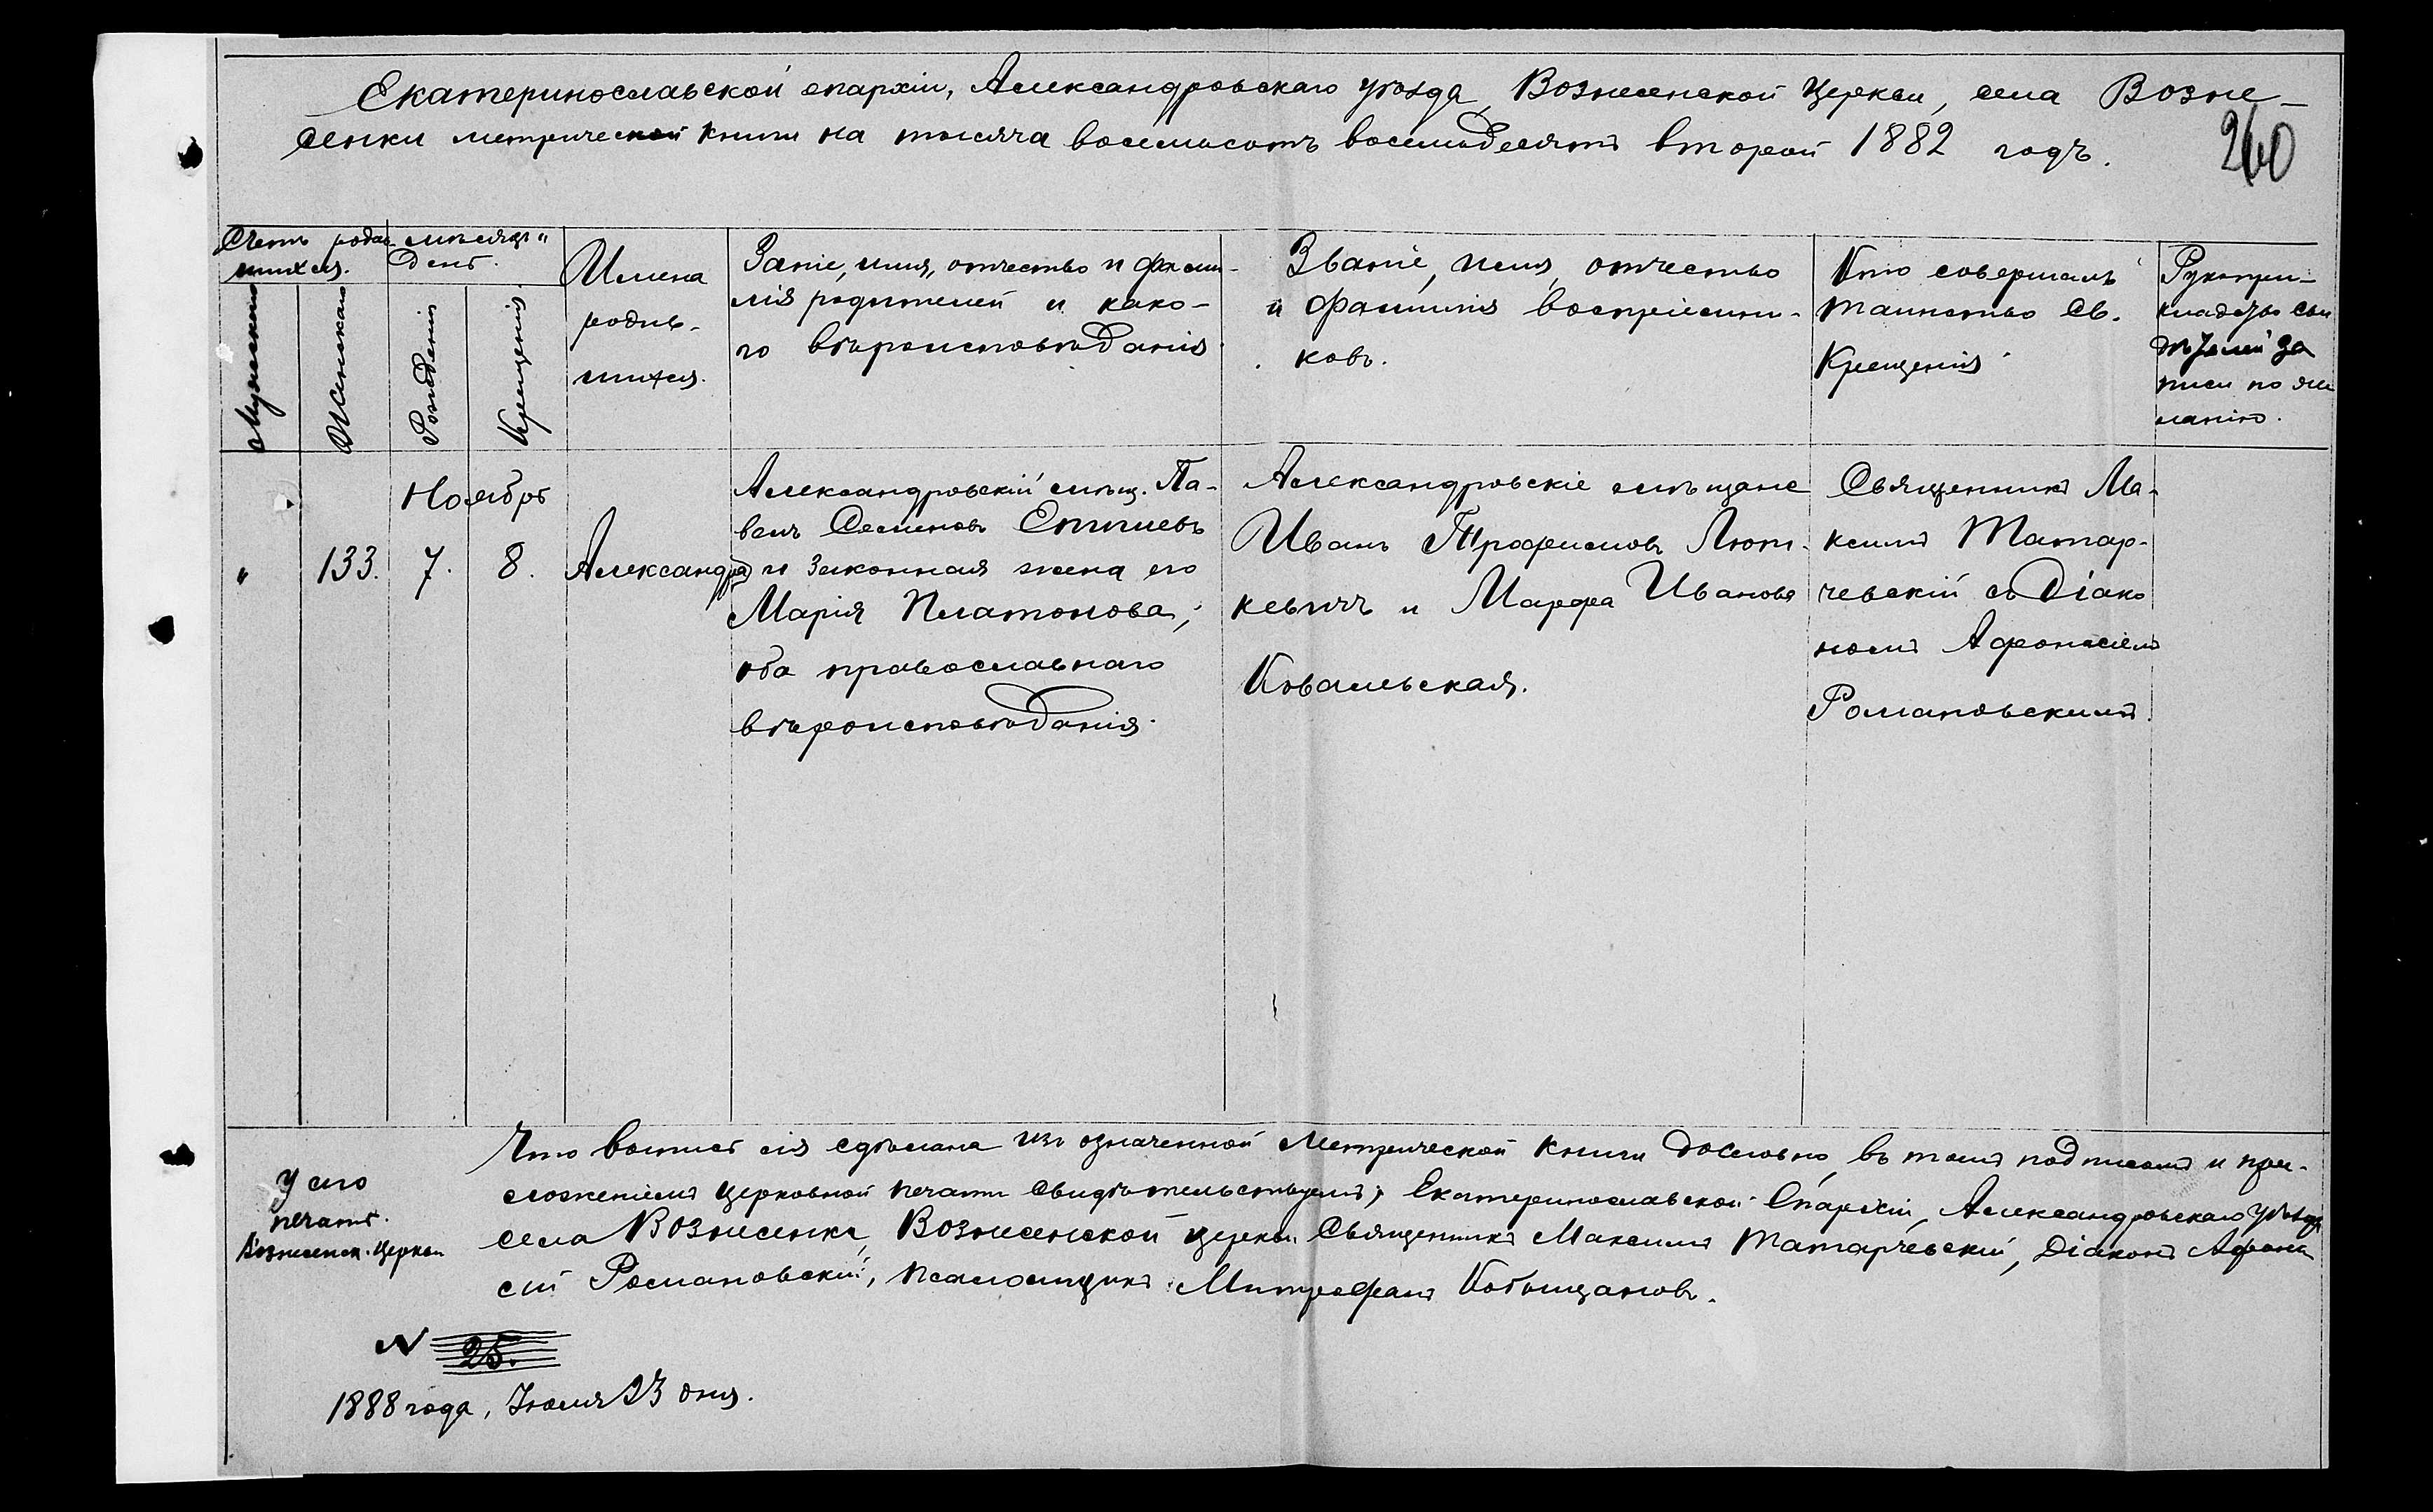 Екатеринославской епархіи, Александровскаго уѣзда, Вознесенской Церкви, села Возне-
сенки метрической книги на тысяча восемьсотъ восемьдесятъ второй 1882 годъ.
260
Счетъ родив-
шихся.
Мужескаго
Женскаго
мѣсяцъ и
день.
Рожденія
Крещенія
Имена
родив-
шихся.
Заніе, имя, отчество и фами-
лія родителей и како-
го вѣроисповѣданія
Званіе, имя, отчество
и фамилія воспріемни-
ковъ.
Кто совершалъ
таинство св.
Крещенія
Рукопри-
кладство сви
дѣтелей за
писи по же
ланію.
"
133.
Ноябрь
7.
8.
Александра
Александровскій мѣщ. Па-
велъ Семеновъ
и законная жена его
Марія Платонова,
оба православнаго
вѣроисповѣданія.
Александровскіе мѣщане
Иванъ Трофимовъ Лют-
кевичъ и Марфа Иванова
Ковальская.
Священникъ Ма-
ксимъ Татар-
чевскій съ Діако
номъ Афонасіемъ
Романовскимъ.
Что выпись сія сдѣлана изъ означенной Метрической книги дословно, въ томъ подписомъ и при-
ложеніемъ церковной печати свидѣтельствуемъ; Екатеринославской Епархіи, Александровскаго уѣзда
села Вознесенки, Вознесенской церкви Священникъ Максимъ Татарчевскій, Діаконъ Афона
сій Романовскій, псаломщикъ Митрофанъ Кобыщановъ.
У сего
печать.
Вознесенск. Церкви
N 25.
1888 года, 23 дня.